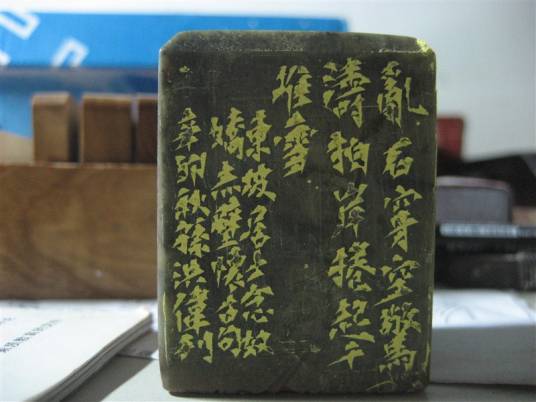 亂石穿空驚
濤拍岸捲起千
堆雪
東坡居士念奴
嬌赤壁懷古句
卯秋孫洪偉